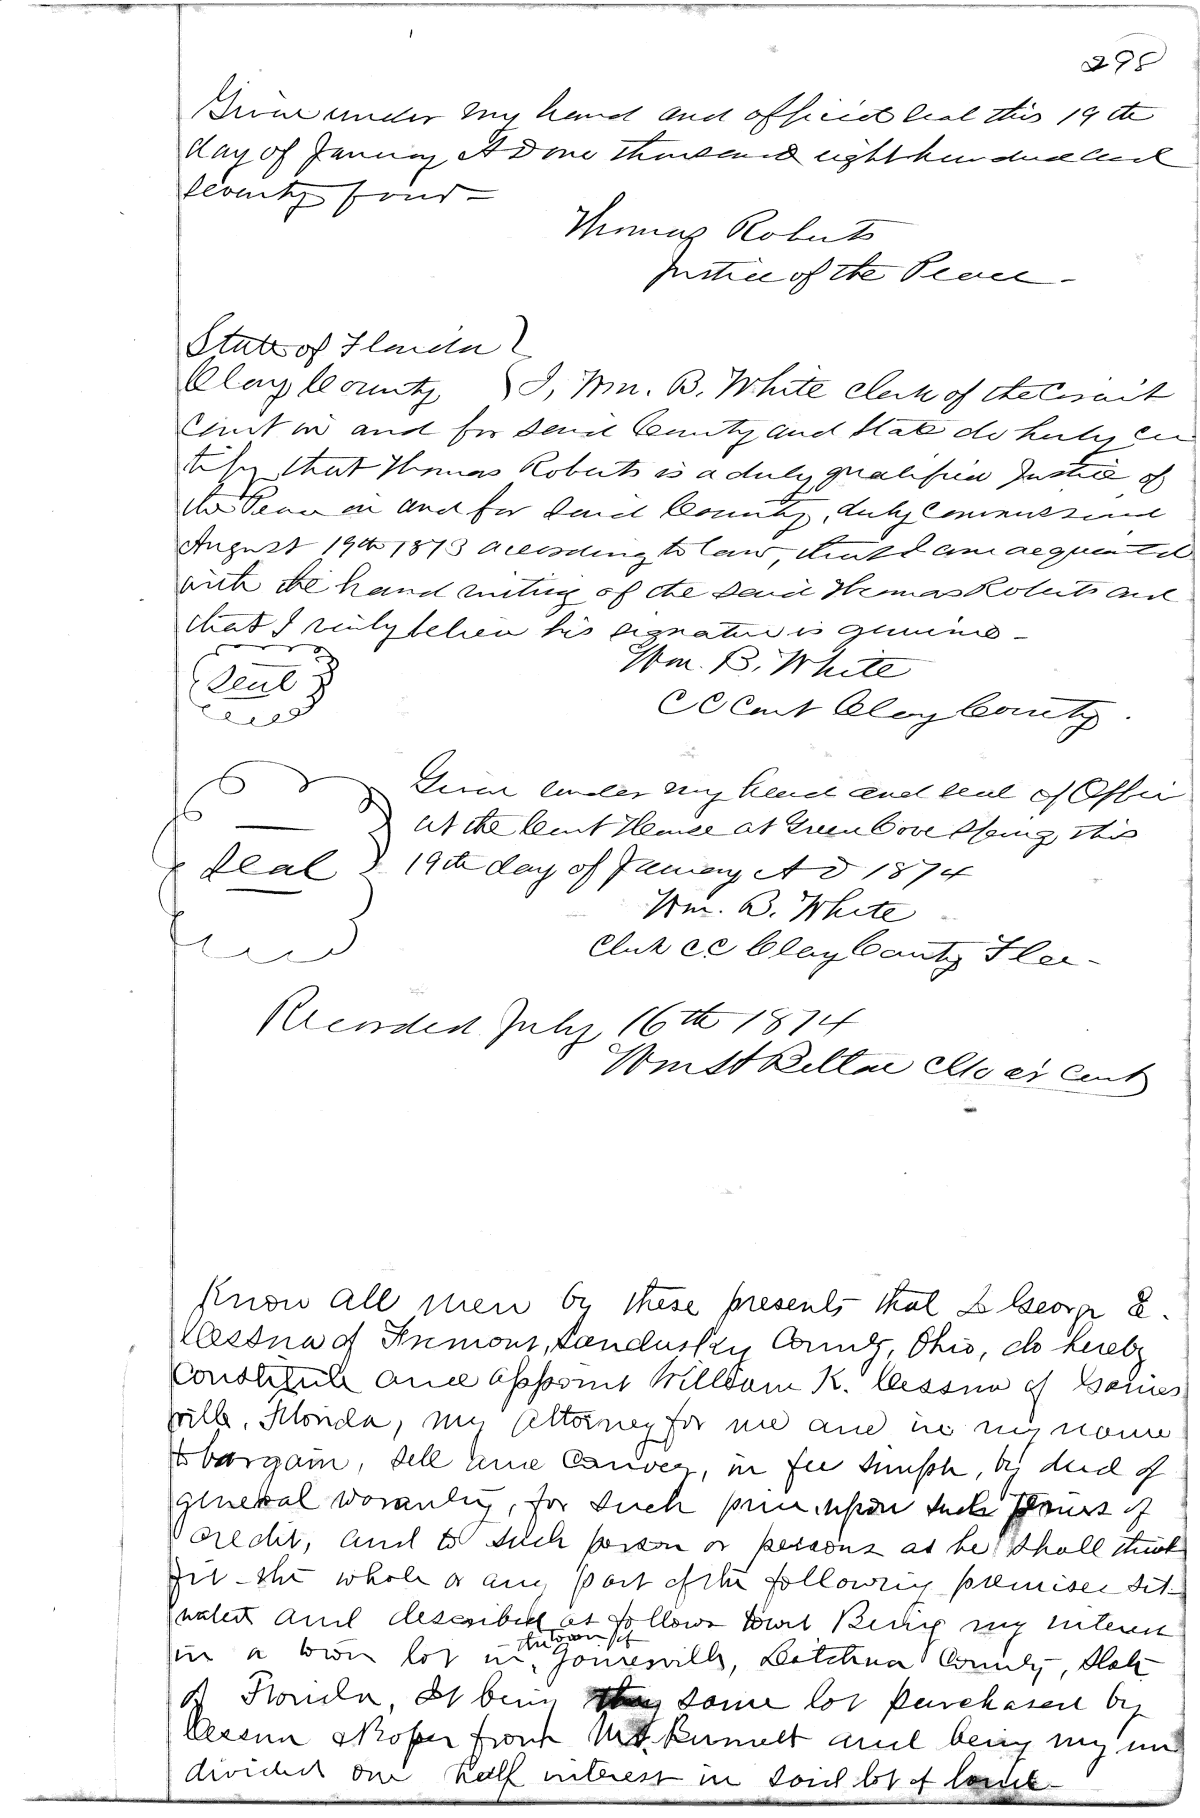 298
Given under my hand and official seal this 19th
day of January AD one thousand eight hundred and
seventy four -
Thomas Roberts
Justice of the Peace -
State of Florida }
Clay County } I, Wm. B. White clerk of the Circuit
Court in and for said County and State do hereby cer
tify that Thomas Roberts is a duly qualified Justice of
the Peace in and for said County, duly commissioned
August 19th 1873 according to law, that I am acquainted
with the hand writing of the said Thomas Roberts and
that I verily believe his signature is genuine -
Wm. B. White
Seal
C C Court Clay County.
Given under my hand and seal of Office
at the Court House at Green Cove Spring this
Seal 19th day of January A D 1874
Wm. B. White
Clerk C.C Clay County Fla -
Recorded July 16th 1874
Wm H Belton Clk Cir Court
Know all men by these presents that I George E.
Cessna of Fremont, Sandusky County, Ohio, do hereby
Constitute and appoint William K. Cessna of Gaines
ville, Florida, my Attorney for me and in my name
to bargain, sell and convey, in fee simple, by deed of
general warranty, for such price, upon such terms of
credit, and to such person or persons as he shall think
fit - the whole or any part of the following premises sit-
uated and described as follows towit Being my interest
in a town lot in, the town of Gainesville, Latchua County, State
of Florida, It being the same lot purchased by
Cessna & Roper from Burnett and being my un
divided one half interest in said lot of land -